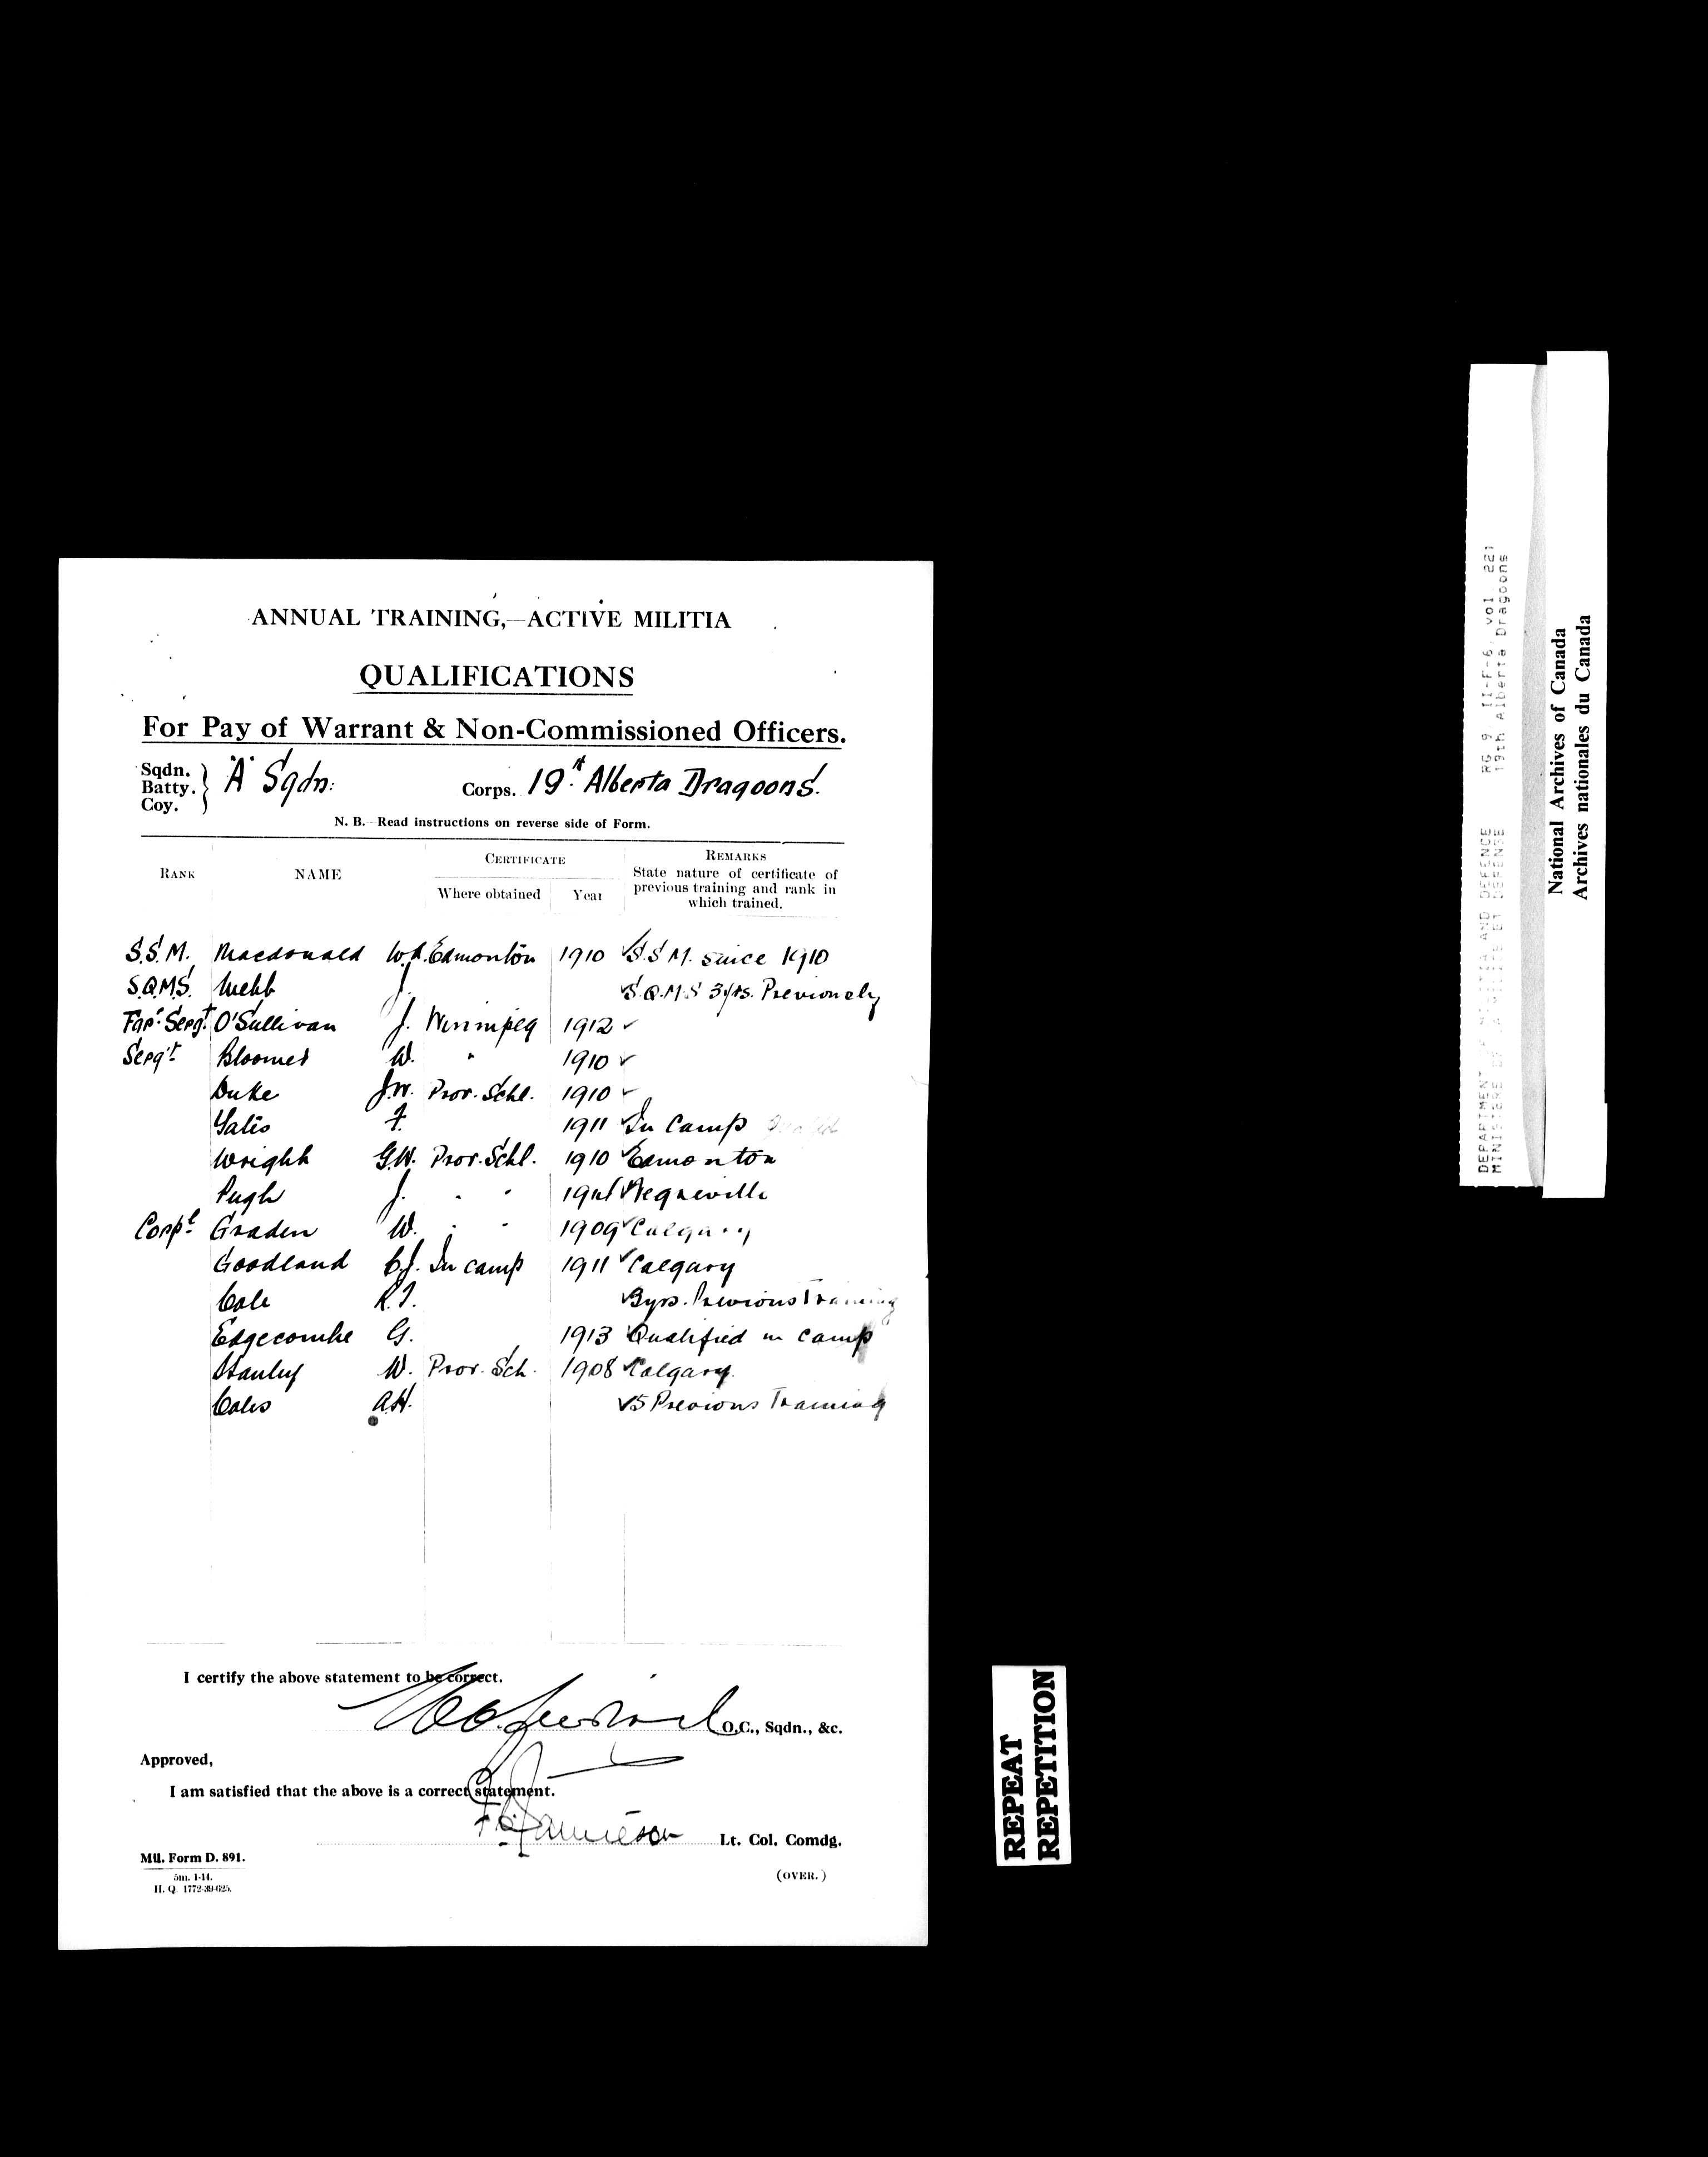 ANNUAL TRAINING,—ACTIVE MILITIA
QUALIFICATIONS
For Pay of Warrant & Non-Commissioned Officers.
Sqdn.
Batty.
Coy.
"A" Sqdn:
Corps. 19th Alberta Dragoons.
N. B.—Read instructions on reverse side of Form.
RANK NAME CERTIFICATE Where obtained Year REMARKS State nature of certificate of previous training and rank in which trained.
S.S.M. Macdonald W.A. Edmonton 1910 ✓S.S.M. since 1910
S.Q.M.S. Webb J. ✓S.Q.M.S 3yrs. Previously
Far. Sergt. O'Sullivan J. Winnipeg 1912 ✓
Sergt. Bloomer W. " 1910 ✓
Duke J.W. Prov. Schl. 1910 ✓
Yates F. 1911 ✓In Camp
Wright G.W. Prov. Schl. 1910 ✓Edmonton
Pugh J. " " ✓Vegreville
Corpl. Graden W. " " 1909 ✓Calgary
Goodland C.J. In camp 1911 ✓Calgary
Cole R.I. ✓3yrs. Previous Training
Edgecombe G. 1913 ✓Qualified in camp
Stanley W. Prov. Sch. 1908 ✓Calgary.
Coles A.H. ✓5 Previous Training
I certify the above statement to be correct.
O.C., Sqdn., &c.
Approved,
I am satisfied that the above is a correct statement.
F.C. Jamieson Lt. Col. Comdg.
Mil. Form D. 891.
5m. 1-14.
H. Q. 1772-39-625.
(OVER.)
REPEAT
REPETITION
DEPARTMENT OF MILITIA AND DEFENCE RG 9, II-F-6, vol 221
MINISTERE DE LA MILICE ET DEFENSE 19th Alberta Dragoons
National Archives of Canada
Archives nationales du Canada